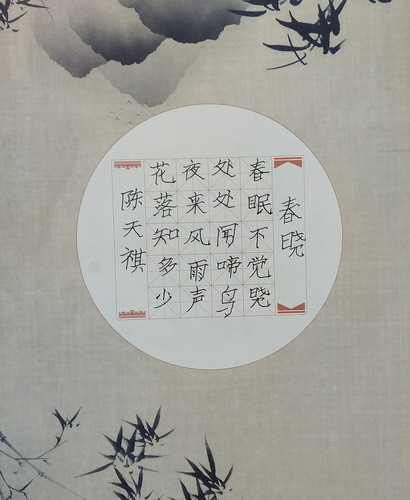 春晓
春眠不觉晓
处处闻啼鸟
夜来风雨声
花落知多少
陈天祺